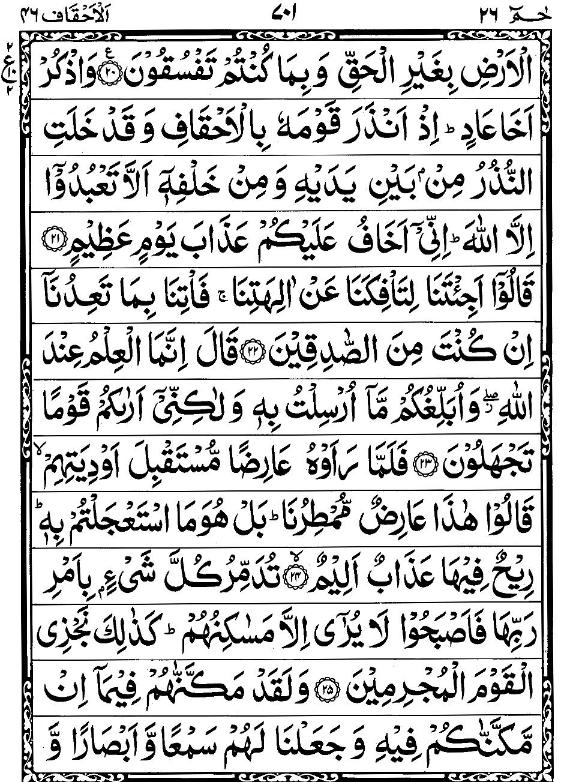 حٰمٓ ٢٦ ٧٠١ اَلْاَحْقَاف ٤٦
الْاَرْضِ بِغَيْرِ الْحَقِّ وَ بِمَا كُنْتُمْ تَفْسُقُوْنَ ﴿٢٠﴾ وَاذْكُرْ
اَخَا عَادٍ ؕ اِذْ اَنْذَرَ قَوْمَهٗ بِالْاَحْقَافِ وَ قَدْ خَلَتِ
النُّذُرُ مِنْۢ بَيْنِ يَدَيْهِ وَ مِنْ خَلْفِهٖۤ اَلَّا تَعْبُدُوْۤا
اِلَّا اللّٰهَ ؕ اِنِّيْۤ اَخَافُ عَلَيْكُمْ عَذَابَ يَوْمٍ عَظِيْمٍ ﴿٢١﴾
قَالُوْۤا اَجِئْتَنَا لِتَاْفِكَنَا عَنْ اٰلِهَتِنَا ۚ فَاْتِنَا بِمَا تَعِدُنَاۤ
اِنْ كُنْتَ مِنَ الصّٰدِقِيْنَ ﴿٢٢﴾ قَالَ اِنَّمَا الْعِلْمُ عِنْدَ
اللّٰهِ ۖؗ وَ اُبَلِّغُكُمْ مَّاۤ اُرْسِلْتُ بِهٖ وَ لٰكِنِّيْۤ اَرٰىكُمْ قَوْمًا
تَجْهَلُوْنَ ﴿٢٣﴾ فَلَمَّا رَاَوْهُ عَارِضًا مُّسْتَقْبِلَ اَوْدِيَتِهِمْ ۙ
قَالُوْا هٰذَا عَارِضٌ مُّمْطِرُنَا ؕ بَلْ هُوَ مَا اسْتَعْجَلْتُمْ بِهٖ ؕ
رِيْحٌ فِيْهَا عَذَابٌ اَلِيْمٌ ۙ﴿٢٤﴾ تُدَمِّرُ كُلَّ شَيْءٍۭ بِاَمْرِ
رَبِّهَا فَاَصْبَحُوْا لَا يُرٰۤى اِلَّا مَسٰكِنُهُمْ ؕ كَذٰلِكَ نَجْزِي
الْقَوْمَ الْمُجْرِمِيْنَ ﴿٢٥﴾ وَ لَقَدْ مَكَّنّٰهُمْ فِيْمَاۤ اِنْ
مَّكَّنّٰكُمْ فِيْهِ وَ جَعَلْنَا لَهُمْ سَمْعًا وَّ اَبْصَارًا وَّ